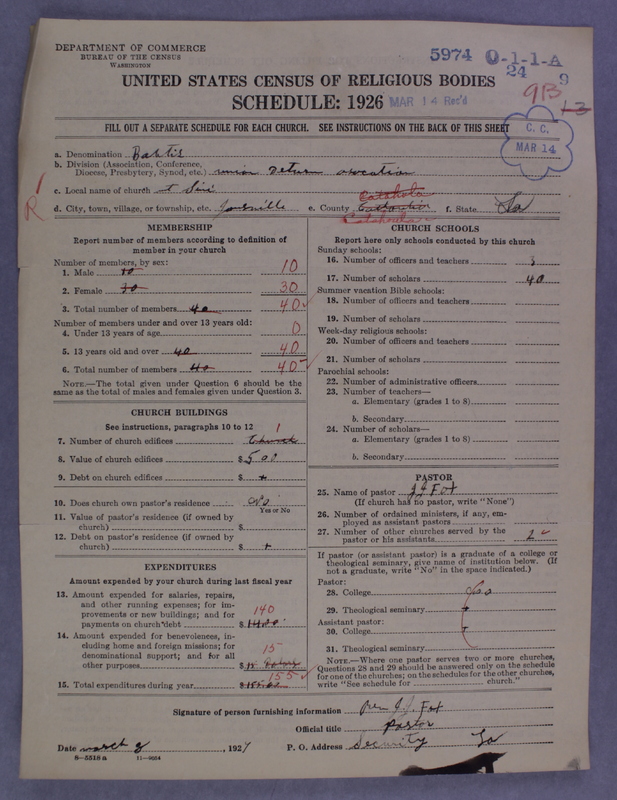 DEPARTMENT OF COMMERCE
BUREAU OF THE CENSUS
WASHINGTON
5974 0-1-1-A
24 9
9B
13
UNITED STATES CENSUS OF RELIGIOUS BODIES
SCHEDULE: 1926 MAR 14 Rec'd
FILL OUT A SEPARATE SCHEDULE FOR EACH CHURCH. SEE INSTRUCTIONS ON THE BACK OF THIS SHEET
C. C.
MAR 14
a. Denomination Babtis
b. Division (Association, Conference,
Diocese, Presbytery, Synod, etc.) union
c. Local name of church
d. City, town, village, or township, etc. Jonesville e. County Catahoula f. State La
Catahoula
R
MEMBERSHIP
Report number of members according to definition of
member in your church
Number of members, by sex:
1. Male 10 10
2. Female 30 30
3. Total number of members 40 40
Number of members under and over 13 years old:
4. Under 13 years of age 0
5. 13 years old and over 40 40
6. Total number of members 40 40
NOTE.—The total given under Question 6 should be
same as the total of males and females given under Question 3.
CHURCH BUILDINGS
See instructions, paragraphs 10 to 12 1
7. Number of church edifices Church
8. Value of church edifices $500
9. Debt on church edifices $
10. Does church own pastor's residence No
Yes or No
11. Value of pastor's residence (if owned by
church) $
12. Debt on pastor's residence (if owned by
church) $
EXPENDITURES
Amount expended by your church during last fiscal year
13. Amount expended for salaries, repairs,
and other running expenses; for im-
provements or new buildings; and for
payments on church debt $ 140
14. Amount expended for benevolences, in-
cluding home and foreign missions; for
denominational support; and for all
other purposes $ 15
15. Total expenditures during year $ 155
CHURCH SCHOOLS
Report here only schools conducted by this church
Sunday schools:
16. Number of officers and teachers 3
17. Number of scholars 40
Summer vacation Bible schools:
18. Number of officers and teachers
19. Number of scholars
Week-day religious schools:
20. Number of officers and teachers
21. Number of scholars
Parochial schools:
22. Number of administrative officers
23. Number of teachers—
a. Elementary (grades 1 to 8)
b. Secondary
24. Number of scholars—
a. Elementary (grades 1 to 8)
b. Secondary
PASTOR
25. Name of pastor J J Fox
(If church has no pastor, write "None")
26. Number of ordained ministers, if any, em-
ployed as assistant pastors
27. Number of other churches served by the
pastor or his assistants 2
If pastor (or assistant pastor) is a graduate of a college or
theological seminary, give name of institution below. (If
not a graduate, write "No" in the space indicated.)
Pastor:
28. College No
29. Theological seminary
Assistant pastor:
30. College
31. Theological seminary
NOTE.—Where one pastor serves two or more churches,
Questions 28 and 29 should be answered only on the schedule
for one of the churches; on the schedules for the other churches,
write "See schedule for church."
Signature of person furnishing information Rev J. J. Fox
Official title Pastor
Date march 8, 1927 P. O. Address Security La
8—5518 a 11—9054